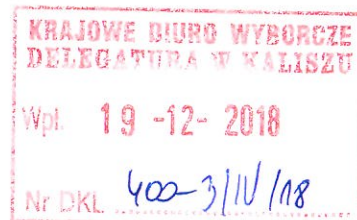 KRAJOWE BIURO WYBORCZE
DELEGATURA W KALISZU
Wpł. 19 -12- 2018
Nr DKL 400-3/IV/18